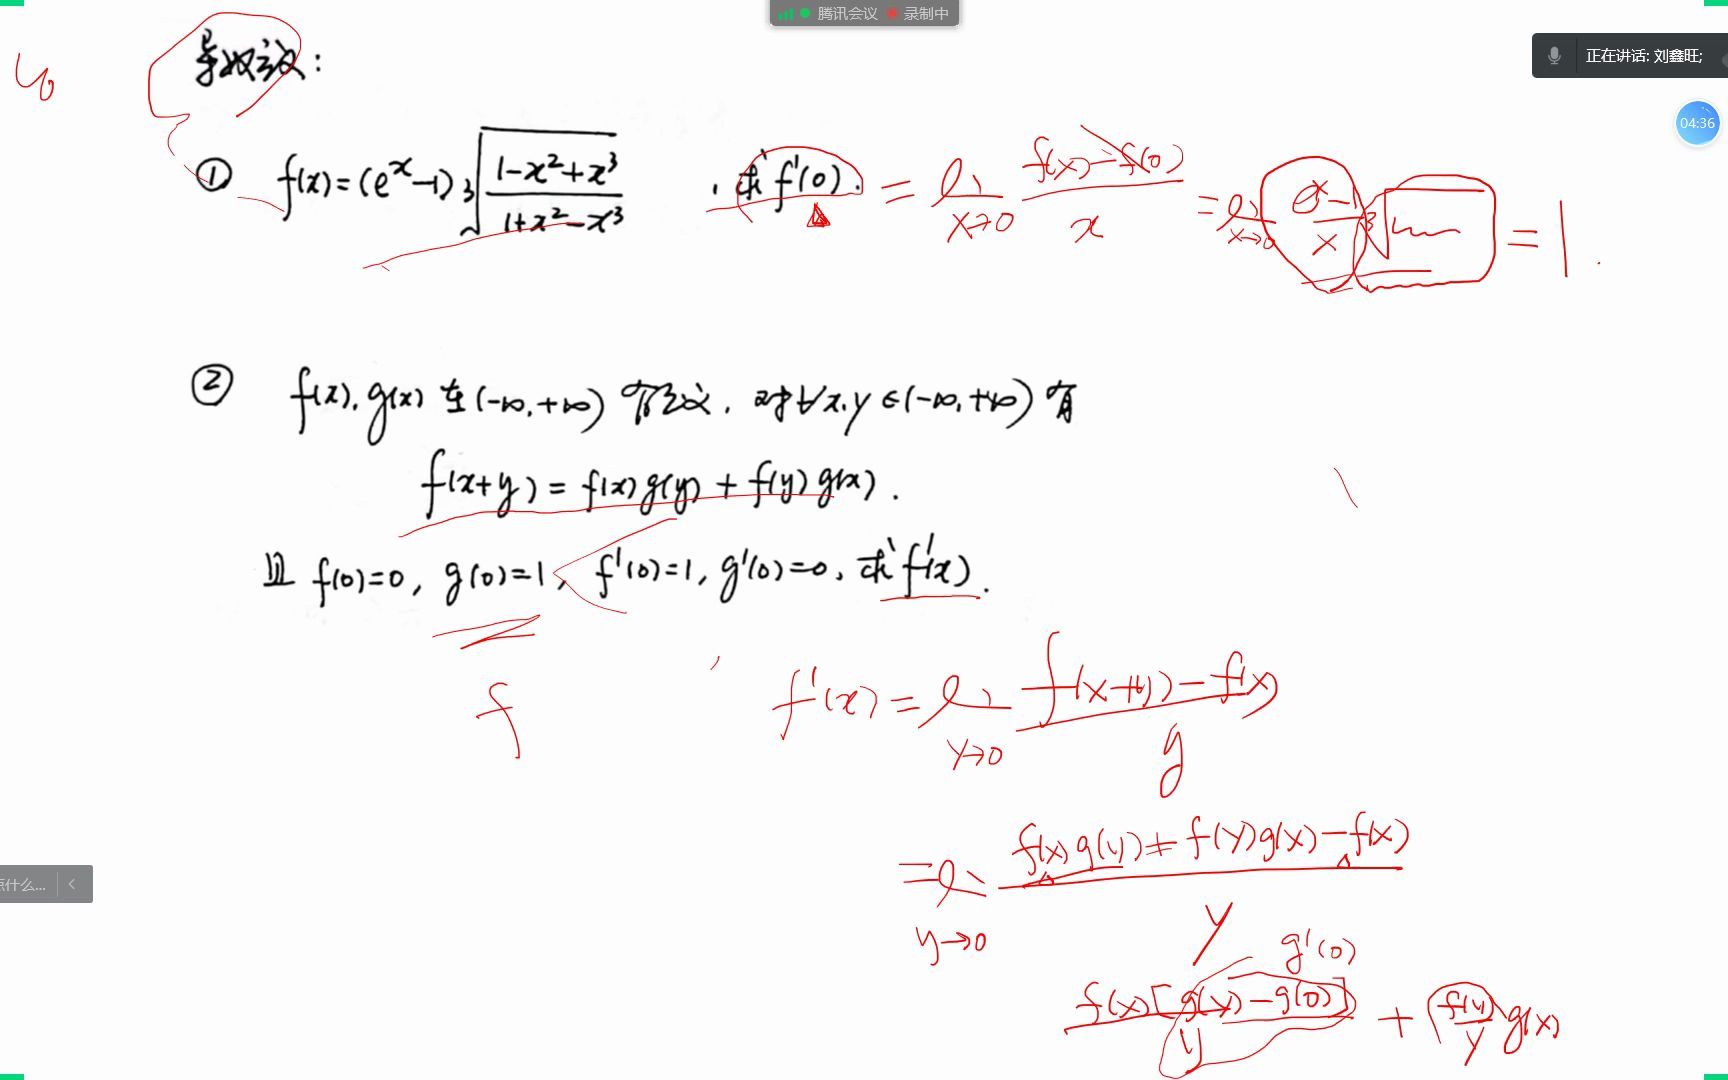 腾讯会议 录制中
正在讲话: 刘鑫旺;
04:36
导数定义:
① f(x)=(e^x-1)∛((1-x²+x³)/(1+x²-x³)) , 求 f'(0). = lim_{x→0} (f(x)-f(0))/x = lim_{x→0} (e^x-1)/x ∛ = 1.
② f(x), g(x) 在 (-∞,+∞) 有定义, 对∀x,y∈(-∞,+∞) 有
f(x+y) = f(x)g(y) + f(y)g(x).
且 f(0)=0, g(0)=1, f'(0)=1, g'(0)=0, 求 f'(x).
f
f'(x) = lim_{y→0} (f(x+y)-f(x))/y
= lim_{y→0} (f(x)g(y)+f(y)g(x)-f(x))/y
g'(0)
f(x)[g(y)-g(0)]/y + f(y)/y g(x)
什么...